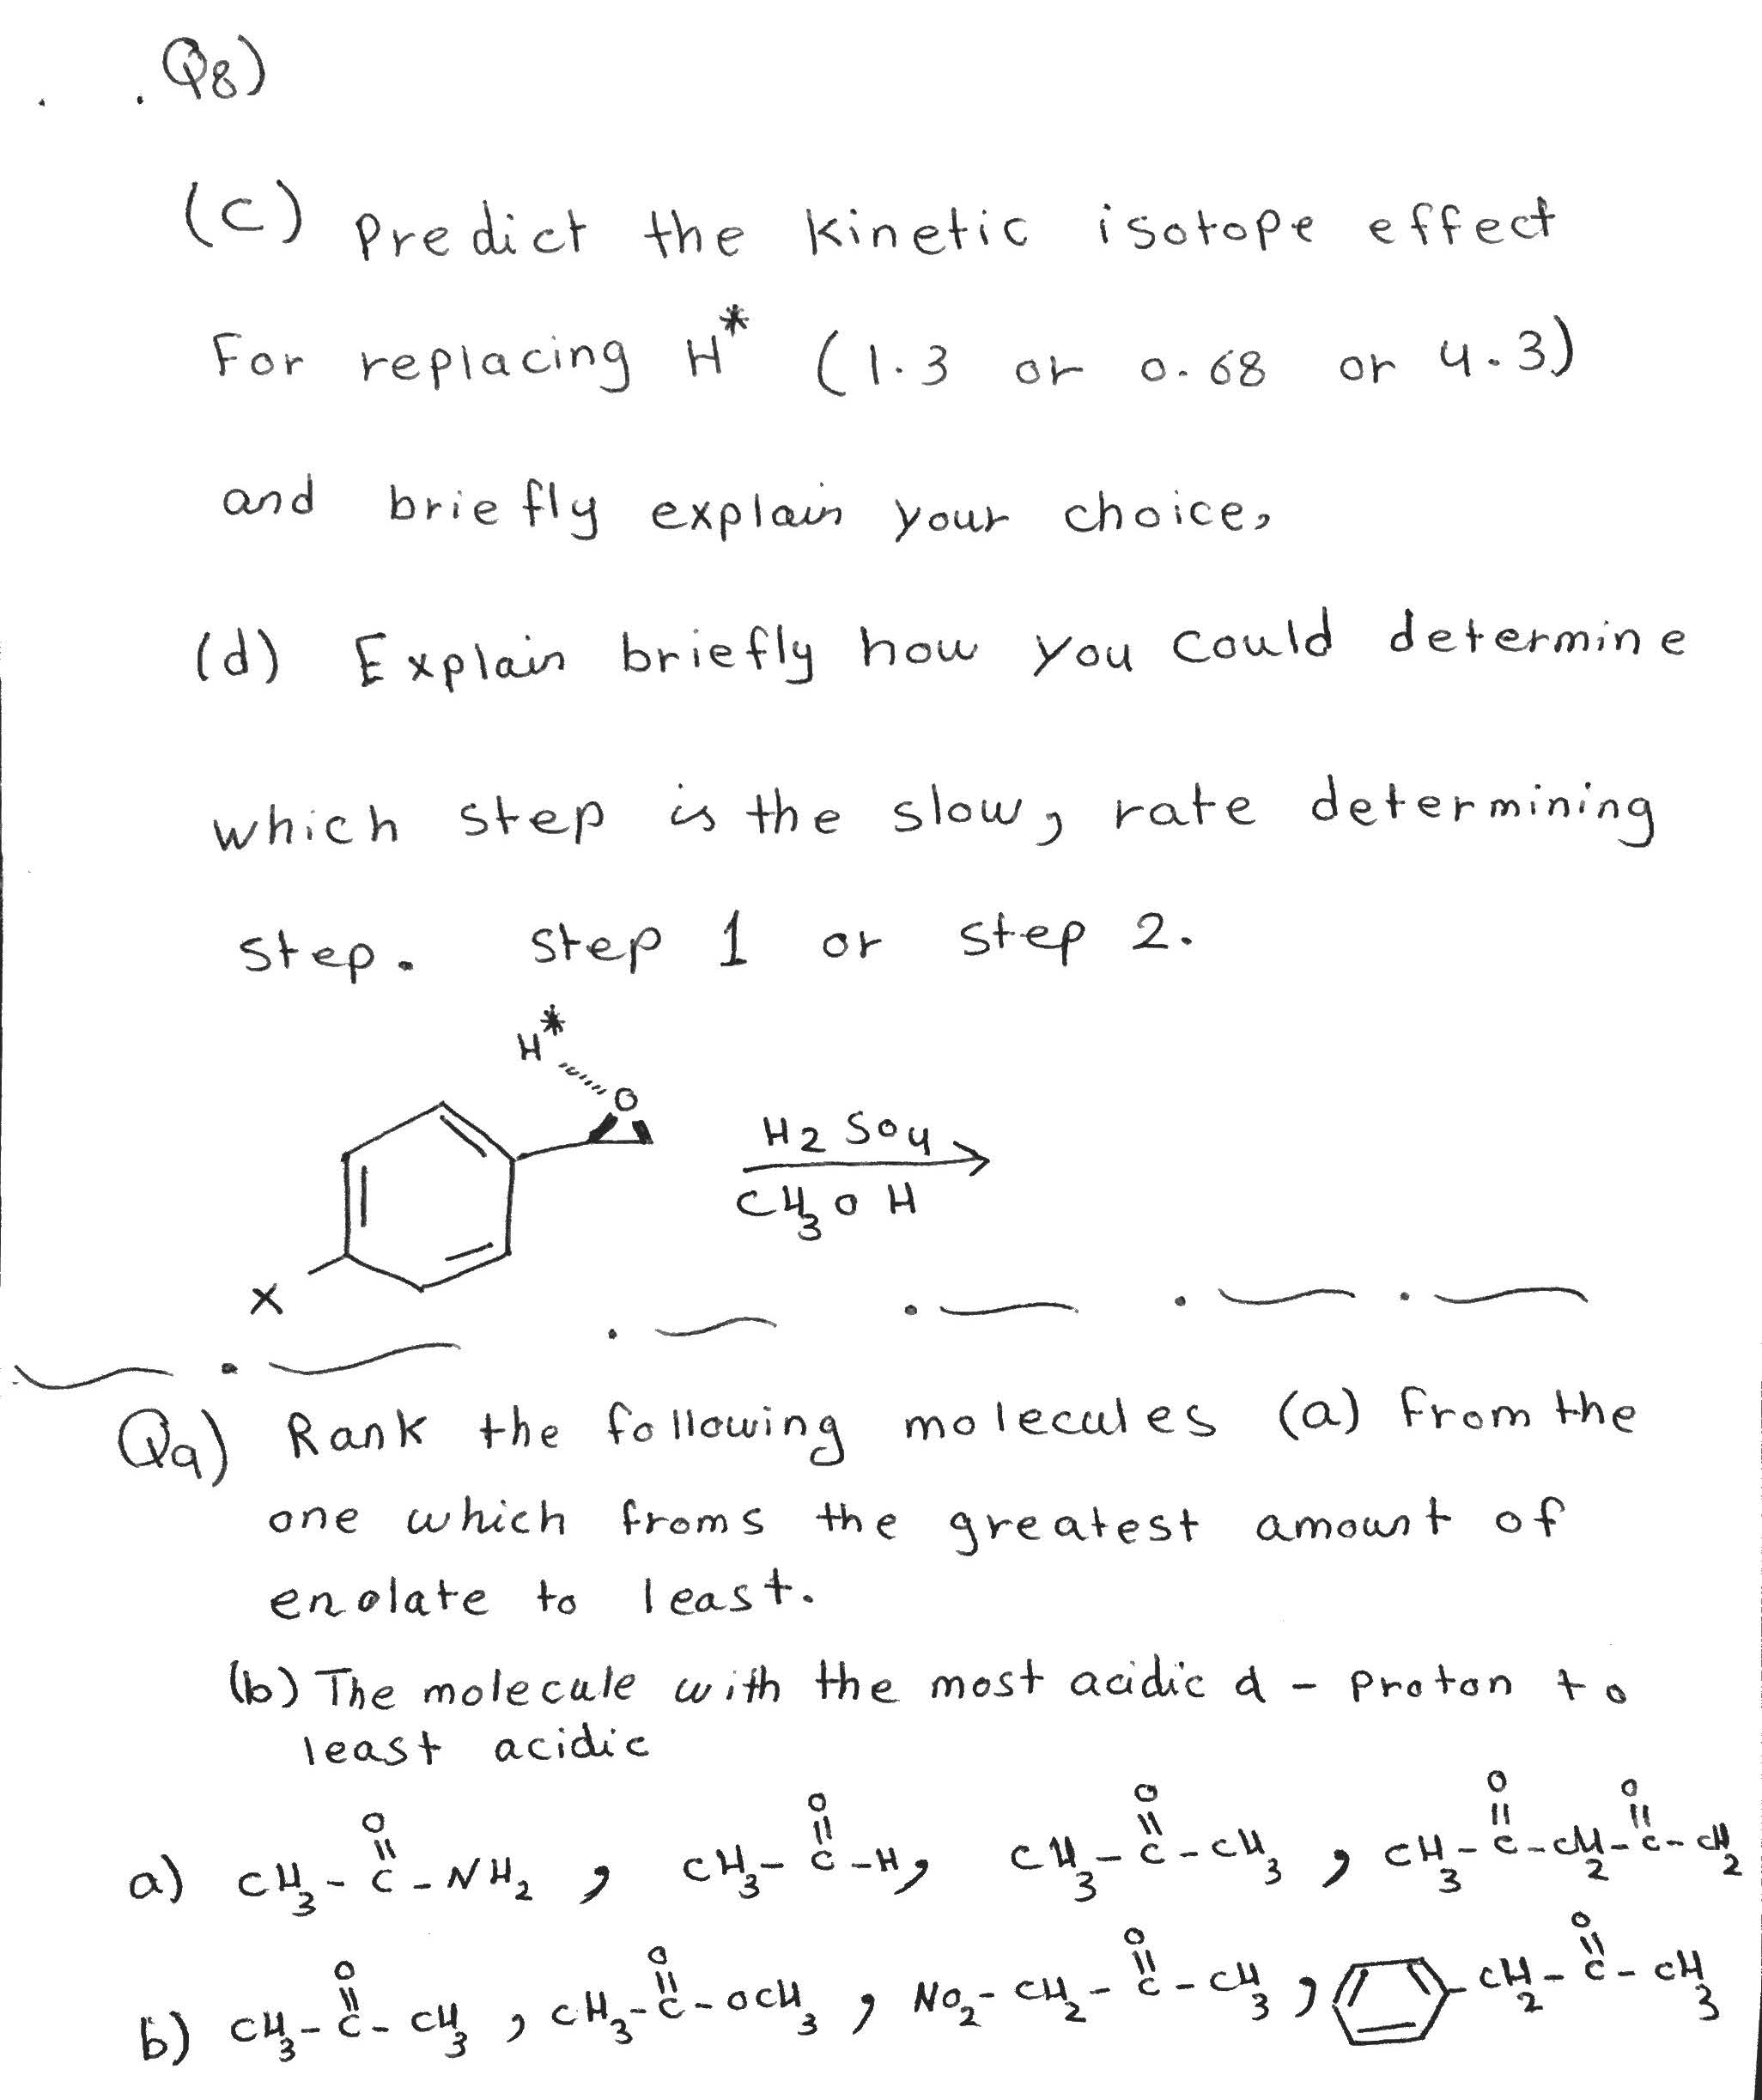 Q8)
(c) Predict the kinetic isotope effect
For replacing H* (1.3 or 0.68 or 4.3)
and briefly explain your choice,
(d) Explain briefly how you could determine
which step is the slow, rate determining
step. step 1 or step 2.
H*
O
H2 SO4
CH3 O H
X
Q9) Rank the following molecules (a) From the
one which froms the greatest amount of
enolate to least.
(b) The molecule with the most acidic α - proton to
least acidic
O O O O O
a) CH3 - C - NH2 , CH3 - C - H, CH3 - C - CH3 , CH3 - C - CH2 - C - CH2
O O O O
b) CH3 - C - CH3 , CH3 - C - OCH3 , NO2 - CH2 - C - CH3 , - CH2 - C - CH3